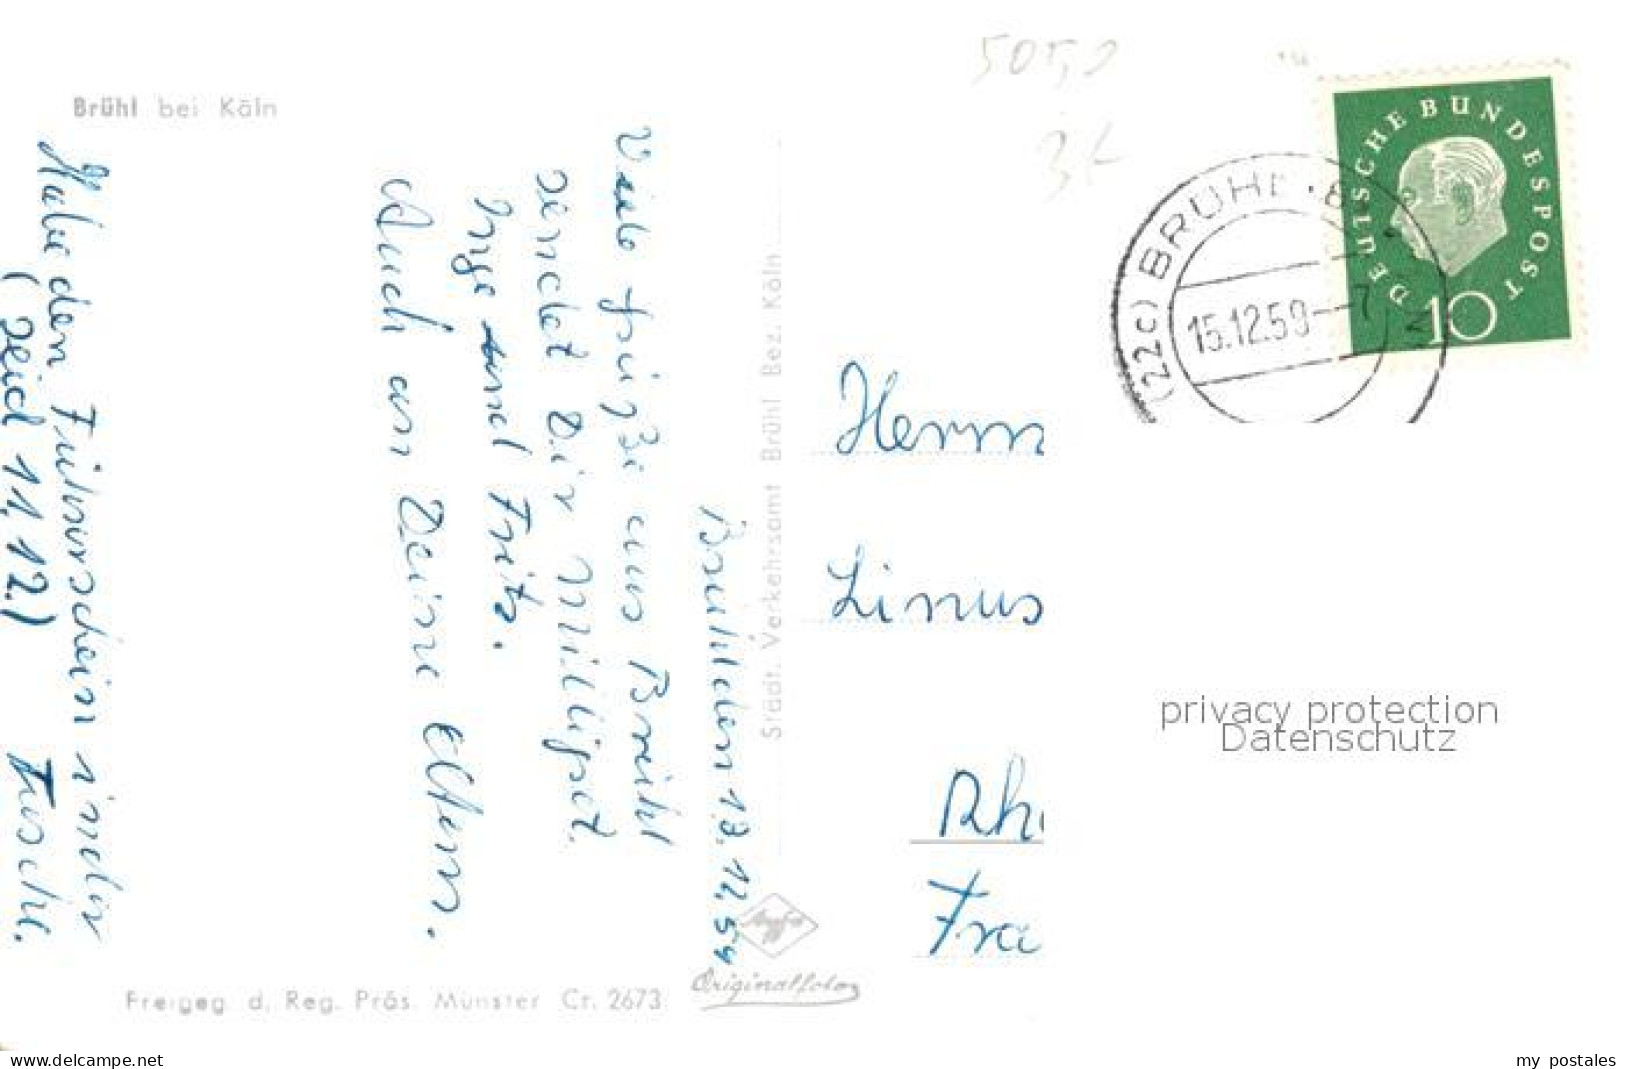 Brühl bei Köln
505,2
3,-
DEUTSCHE BUNDESPOST
10
(22c) BRÜHL · B
15.12.59--7
Brühl, den 13.12.59
Viele Grüße aus Brühl
sendet Dir
Inge und Fritz.
Auch an Deine Eltern.
Habe den Führerschein in der
Tasche.
(seid 11.12.)
Städt. Verkehrsamt Brühl Bez. Köln
Herrn
Linus
Rh
Fra
privacy protection
Datenschutz
Agfa
Originalfoto
Freigeg. d. Reg. Präs. Münster Cr. 2673
www.delcampe.net
my_postales